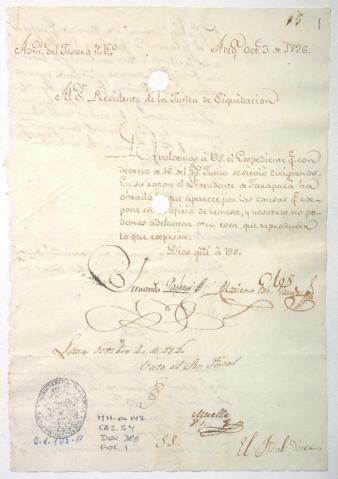 13
Adm.ⁿ del Tesoro P.co
Areq.ª Oct.e 3. de 1826.
Al S.r Presidente de la Junta de Liquidacion
Devolvemos à VS. el Expediente q.e con
decreto de 16 del p.p. Junio se sirvió dirigirnos.
En su razon el Yntendente de Tarapacà ha
obrado lo que aparece por las causas q.e ex-
pone en su oficio de remesa, y nosotros no po-
demos adelantar otra cosa, que reproducir
lo que expresa.
Dios gũe à VS.
Lima Octubre de 1826
Vista al Sor Fiscal
Muelle
S.S.
El Fiscal
MH-OL 147
CAJ. 54
DOC. 385
FOL. 1
O.L. 147-11